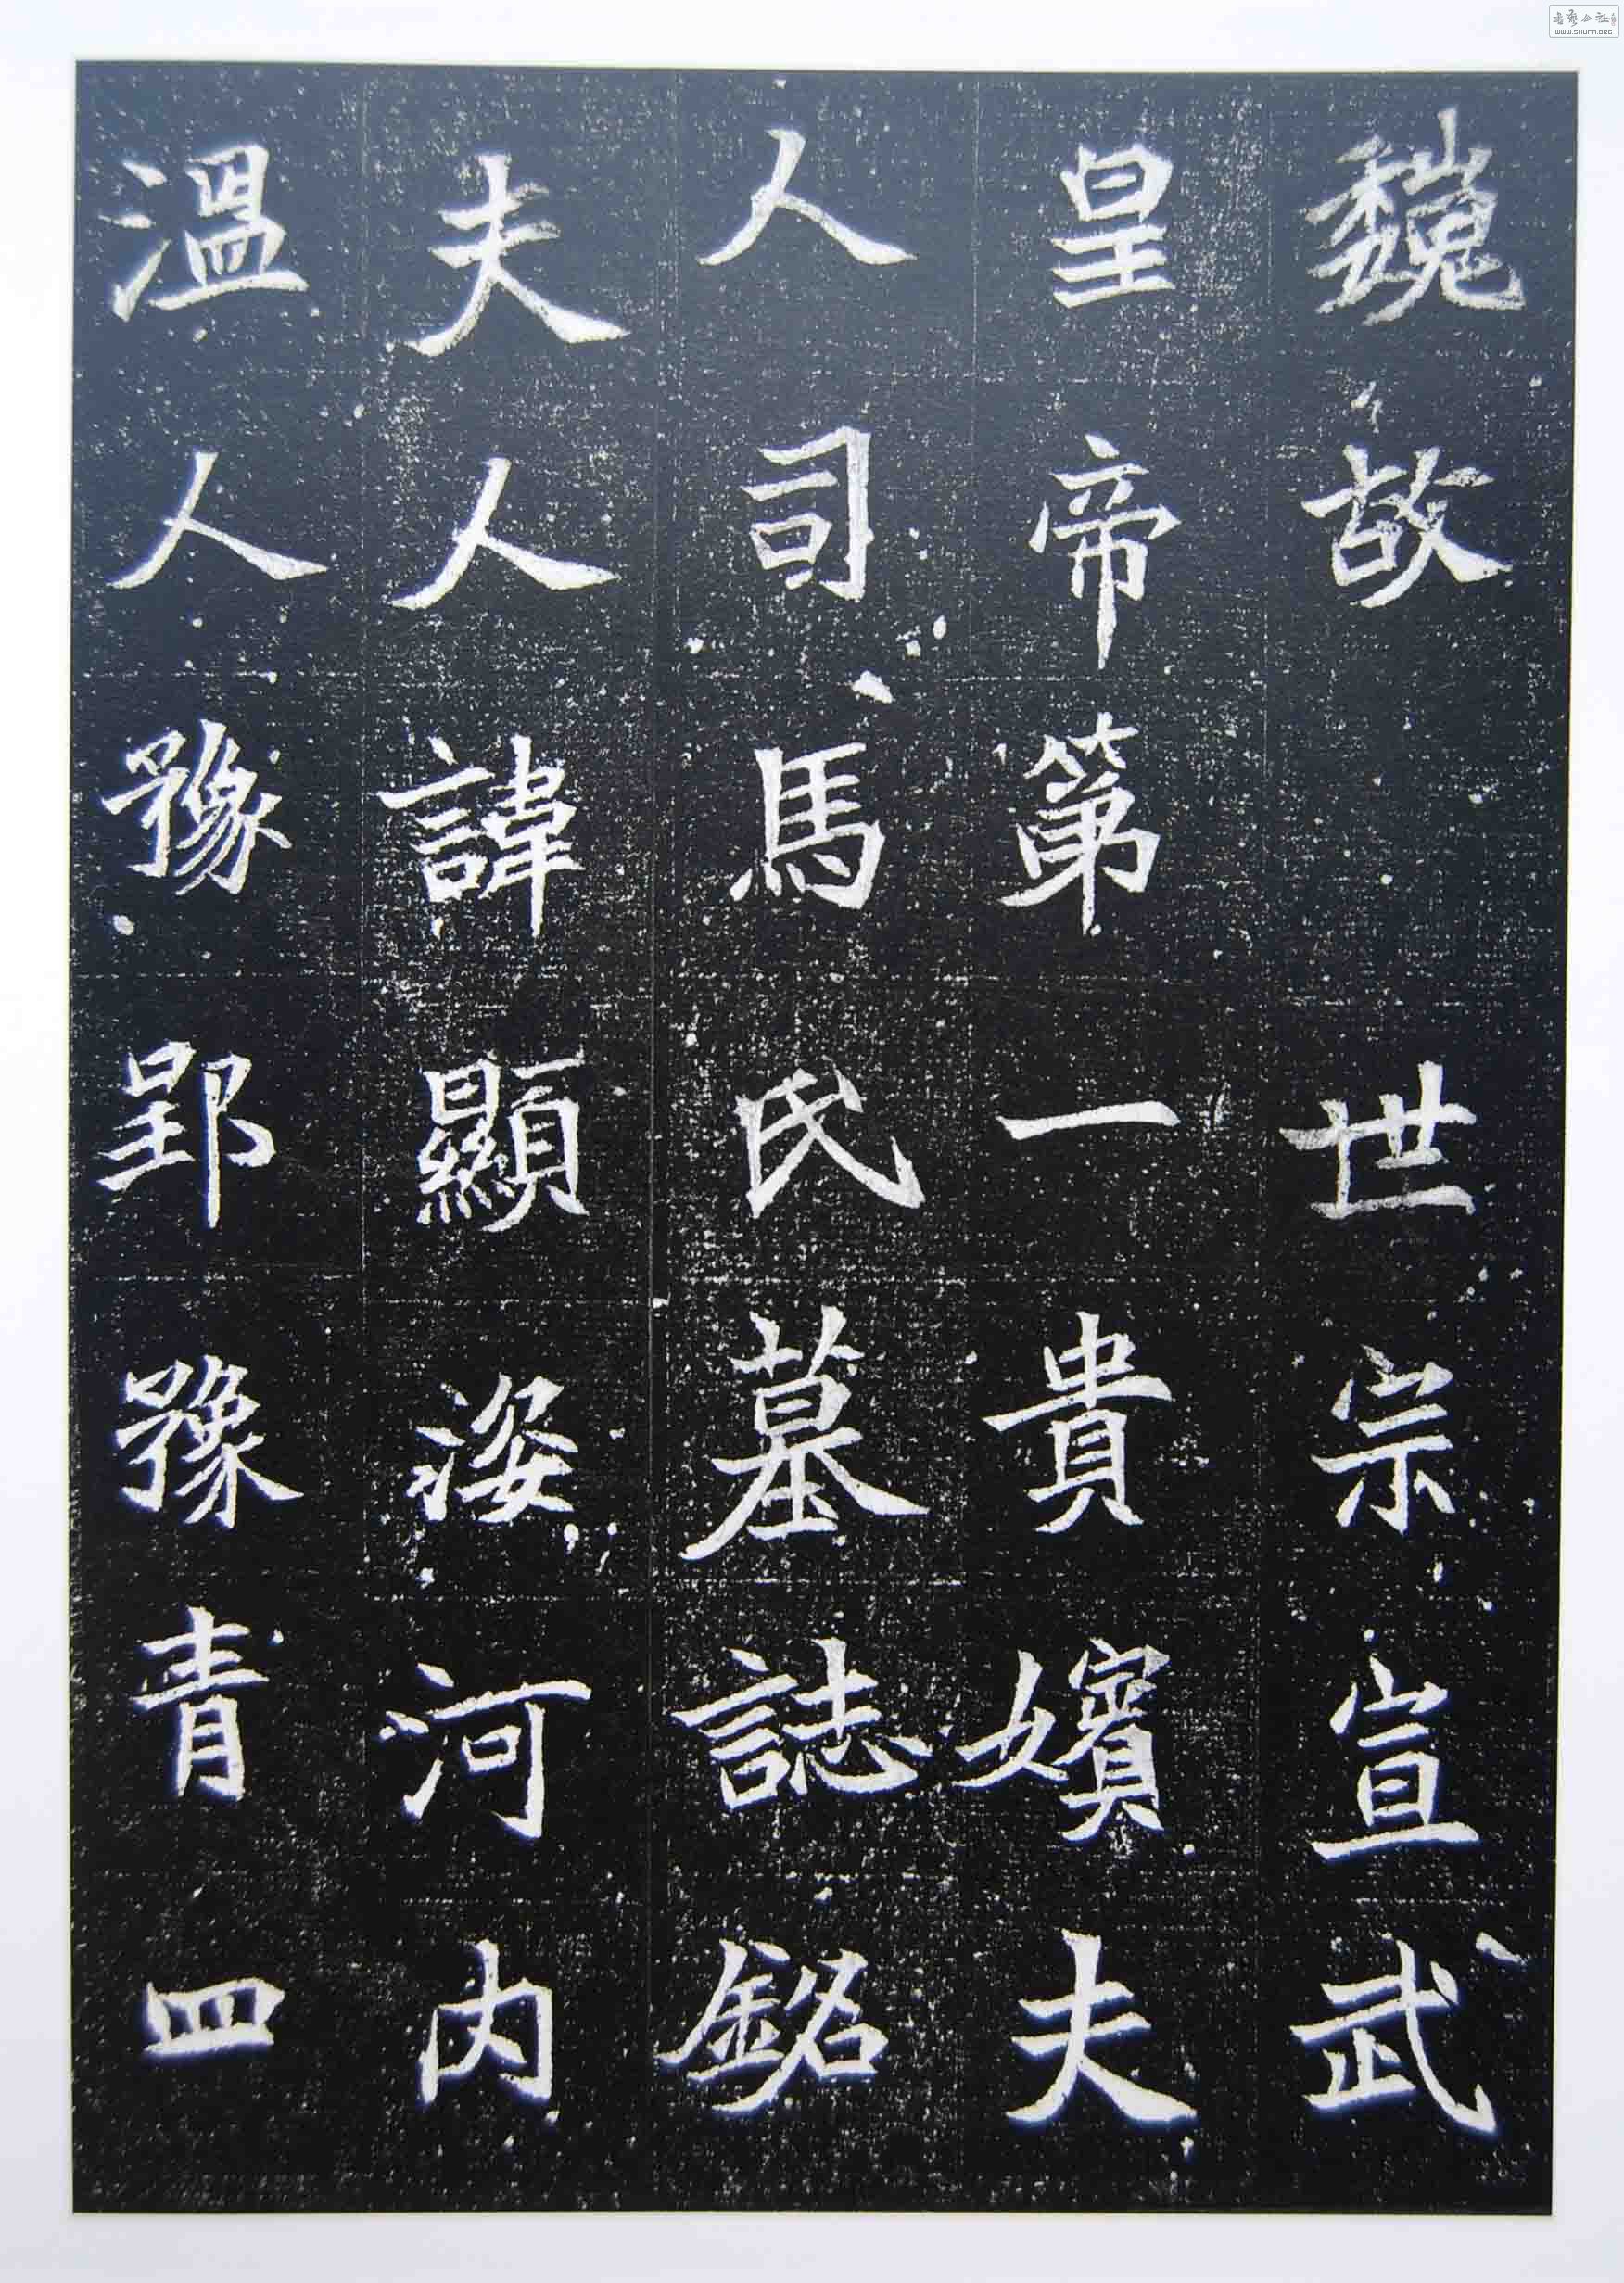 魏故 世宗宣武
皇帝第一貴嬪夫
人司馬氏墓誌銘
夫人諱顯姿河內
溫人豫郢豫青四
WWW.SHUFA.ORG